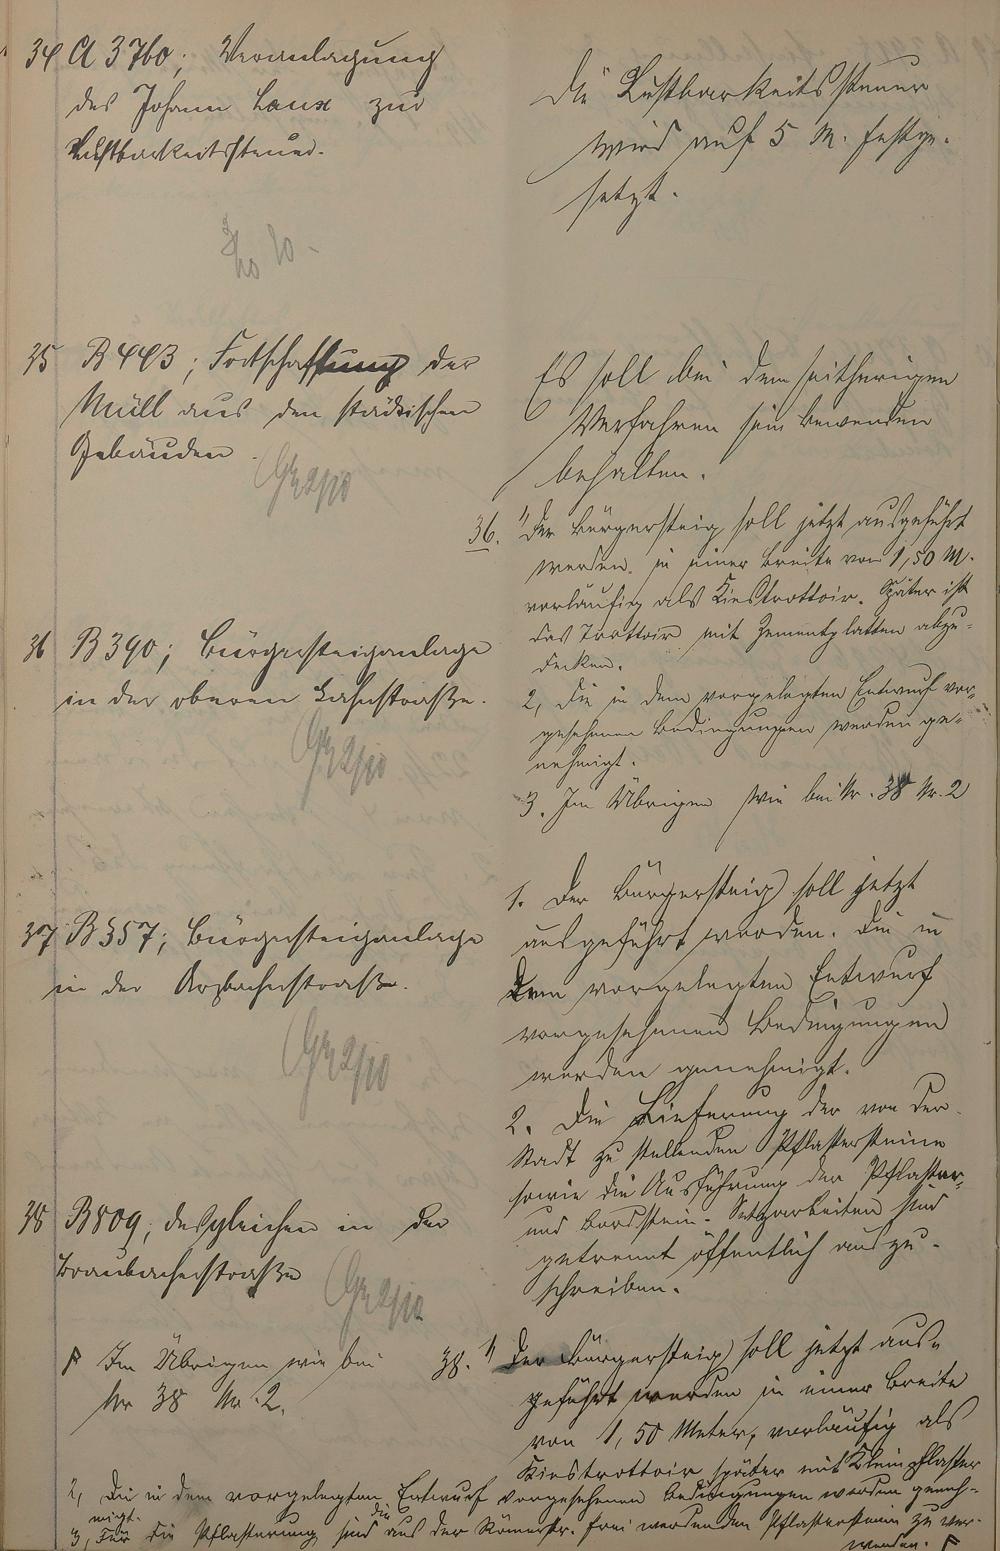 34 A 3760; Veranlagung
des Johann Laux zur
Lustbarkeitssteuer.
Die Lustbarkeitssteuer
wird auf 5 M. festge-
setzt.
35 B 443; Fortschaffung der
Müll aus den städtischen
Gebäuden.
Es soll bei dem seitherigen
Verfahren sein Bewenden
behalten.
36 B 390; Bürgersteiganlage
in der oberen Lahnstraße.
36. 1, Der Bürgersteig soll jetzt ausgeführt
werden in einer Breite von 1,50 M.
vorläufig als Kiestrottoir. Später ist
das Trottoir mit Zementplatten abzu-
decken.
2, Die in dem vorgelegten Entwurf vor-
gesehenen Bedingungen werden ge-
nehmigt.
3. Im Übrigen wie bei Nr. 38 Nr. 2
37 B 357; Bürgersteiganlage
in der Arzbacherstraße.
1. Der Bürgersteig soll jetzt
ausgeführt werden. Die in
dem vorgelegten Entwurf
vorgesehenen Bedingungen
werden genehmigt.
2. Die Lieferung der von der
Stadt zu stellenden Pflastersteine
sowie die Ausführung der Pflaster-
und Bordstein-Setzarbeiten sind
getrennt öffentlich auszu-
schreiben.
38 B 809; desgleichen in der
Braubacherstraße
38. 1, Der Bürgersteig soll jetzt aus-
geführt werden in einer Breite
von 1,50 Meter, vorläufig als
Kiestrottoir später mit Kleinpflaster
2, Die in dem vorgelegten Entwurf vorgesehenen Bedingungen werden geneh-
migt.
3, Für die Pflasterung sind die aus der Römerstr. frei werdenden Pflastersteine zu ver-
wenden.
Im Übrigen wie bei
Nr 38 Nr. 2.